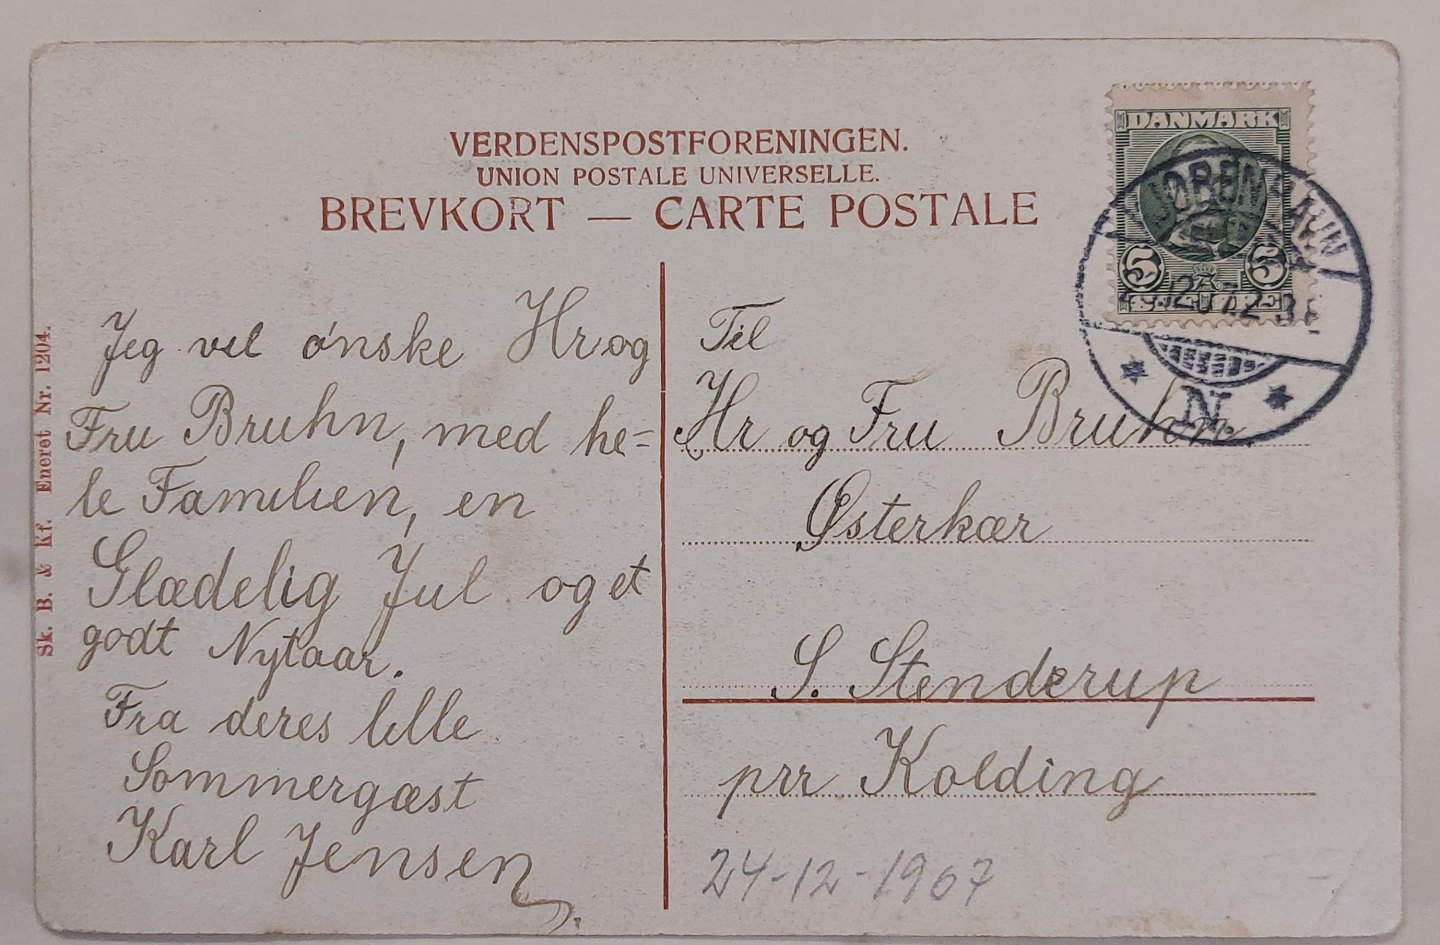 VERDENSPOSTFORENINGEN.
UNION POSTALE UNIVERSELLE.
BREVKORT — CARTE POSTALE
DANMARK
KJØBENHAVN
5 5
N.
Sk. B. & Kf. Eneret Nr. 1204.
Jeg vil ønske Hr og
Fru Bruhn, med he=
le Familien, en
Glædelig Jul og et
godt Nytaar.
Fra deres lille
Sommergæst
Karl Jensen.
Til
Hr og Fru Bruhn.
Østerkær
S. Stenderup
prr Kolding
24-12-1907